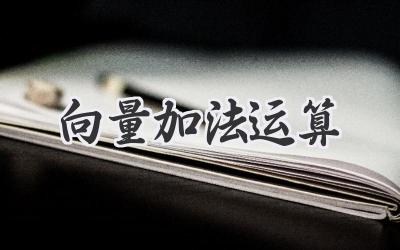 向量加法运算